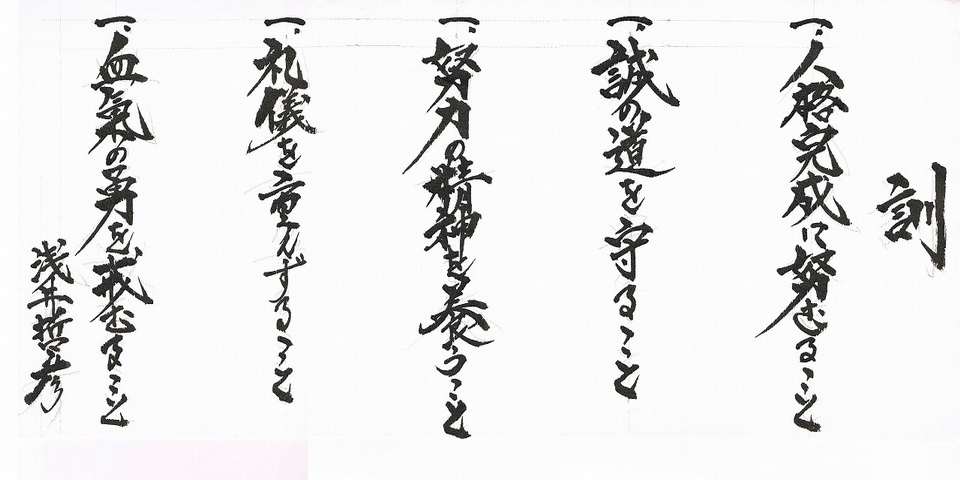 訓
一、人格完成に努むること
一、誠の道を守ること
一、努力の精神を養うこと
一、礼儀を重んずること
一、血氣の勇を戒むること
浅井哲彦